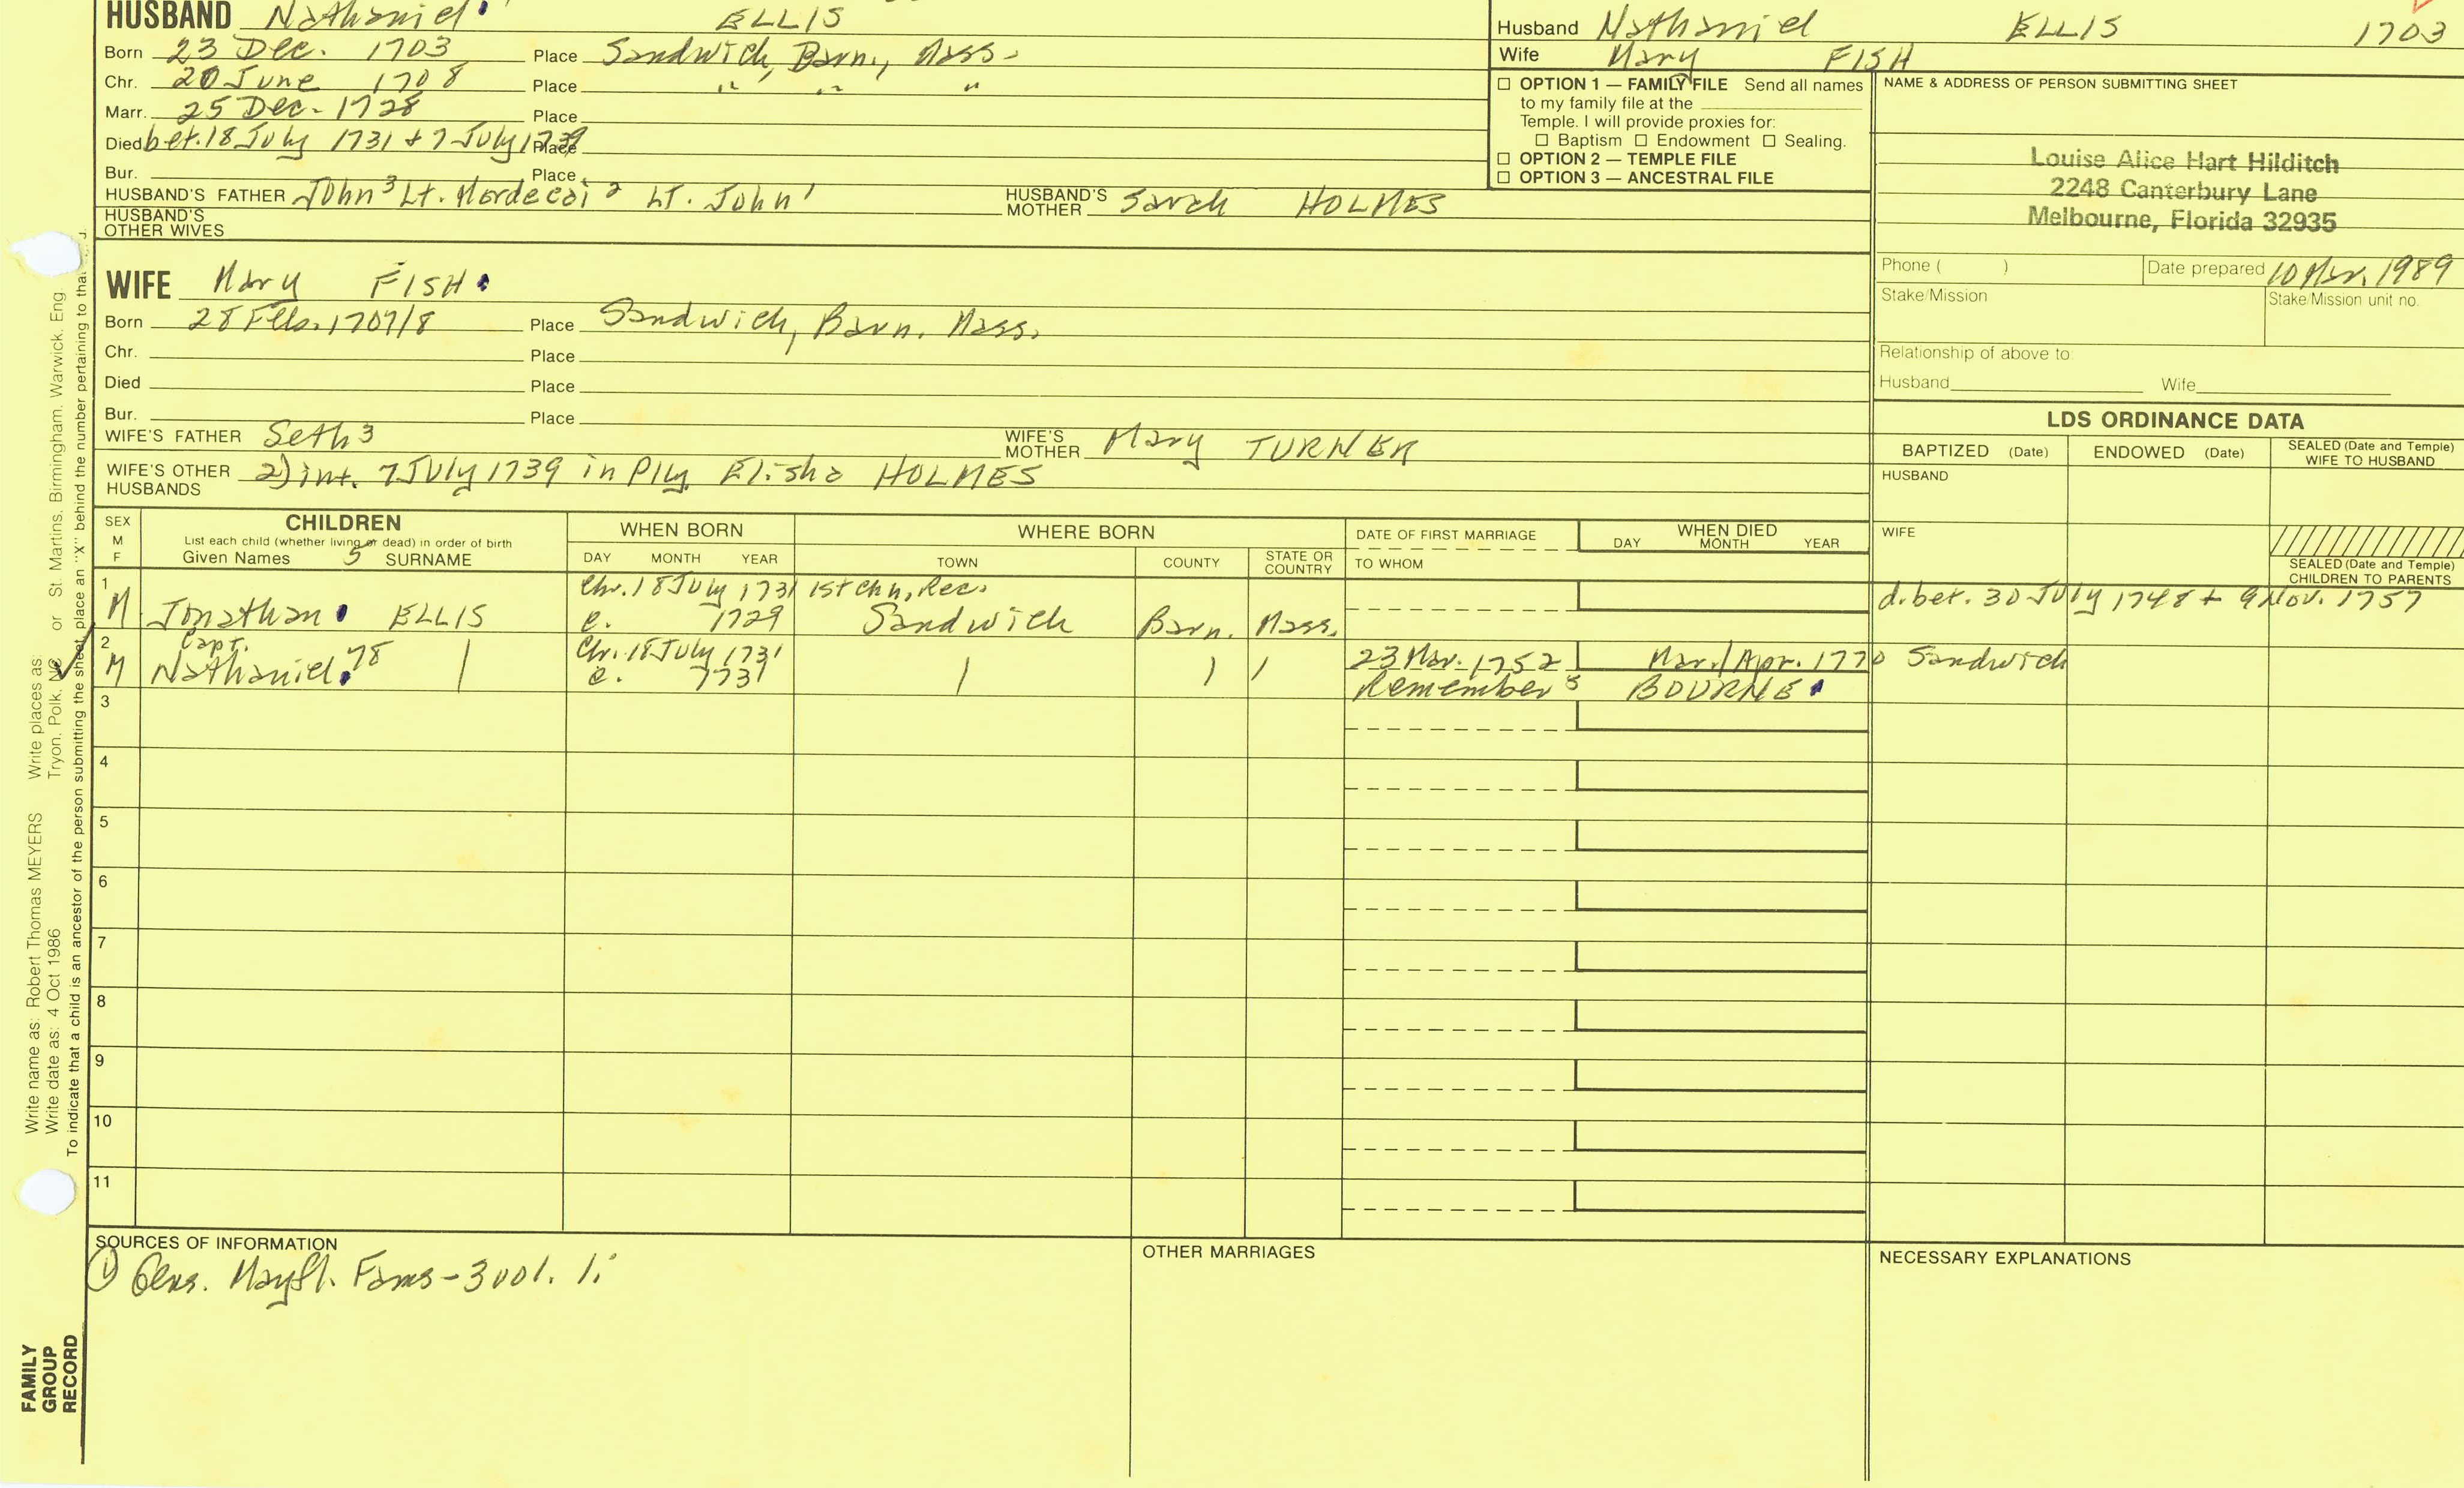 HUSBAND Nathaniel ELLIS
Born 23 Dec. 1703 Place Sandwich, Barn., Mass.
Chr. 20 June 1708 Place " " "
Marr. 25 Dec. 1728 Place
Died bet. 18 July 1731 + 7 July 1739 Place
Bur. Place
HUSBAND'S FATHER John 3 Lt. Mordecai 2 Lt. John 1 HUSBAND'S MOTHER Sarah HOLMES
HUSBAND'S OTHER WIVES
Husband Nathaniel ELLIS 1703
Wife Mary FISH
☐ OPTION 1 — FAMILY FILE Send all names
to my family file at the
Temple. I will provide proxies for:
☐ Baptism ☐ Endowment ☐ Sealing.
☐ OPTION 2 — TEMPLE FILE
☐ OPTION 3 — ANCESTRAL FILE
NAME & ADDRESS OF PERSON SUBMITTING SHEET
Louise Alice Hart Hilditch
2248 Canterbury Lane
Melbourne, Florida 32935
Phone ( ) Date prepared 10 Mar. 1989
Stake/Mission Stake/Mission unit no.
Relationship of above to:
Husband Wife
WIFE Mary FISH
Born 28 Feb. 1707/8 Place Sandwich, Barn. Mass.
Chr. Place
Died Place
Bur. Place
WIFE'S FATHER Seth 3 WIFE'S MOTHER Mary TURNER
WIFE'S OTHER HUSBANDS 2) int. 7 July 1739 in Ply. Elisha HOLMES
LDS ORDINANCE DATA
BAPTIZED (Date) ENDOWED (Date) SEALED (Date and Temple) WIFE TO HUSBAND
HUSBAND
WIFE
SEALED (Date and Temple) CHILDREN TO PARENTS
SEX M F CHILDREN WHEN BORN WHERE BORN DATE OF FIRST MARRIAGE WHEN DIED
List each child (whether living or dead) in order of birth
Given Names 5 SURNAME DAY MONTH YEAR TOWN COUNTY STATE OR COUNTRY TO WHOM DAY MONTH YEAR
1 Chr. 18 July 1731 1st Chh, Rec. d. bet. 30 July 1748 + 9 Nov. 1757
M Jonathan ELLIS c. 1729 Sandwich Barn. Mass.
2 Capt. Chr. 18 July 1731 23 Mar. 1752 Mar./Apr. 1770 Sandwich
M Nathaniel 78 c. 1731 Remember 5 BOURNE
3
4
5
6
7
8
9
10
11
SOURCES OF INFORMATION OTHER MARRIAGES NECESSARY EXPLANATIONS
① Gens. Mayfl. Fams - 3 vol. 1:
Write name as: Robert Thomas MEYERS Write places as: St. Martins, Birmingham, Warwick, Eng
Write date as: 4 Oct 1986 Tryon, Polk, NC or
To indicate that a child is an ancestor of the person submitting the sheet, place an "X" behind the number pertaining to that
FAMILY
GROUP
RECORD